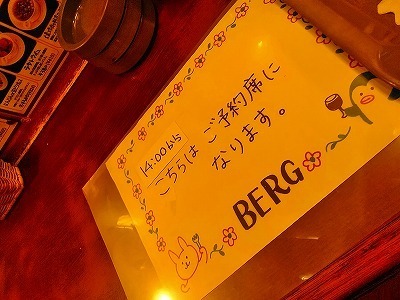 14:00から
こちらは ご予約席に
なります。
BERG